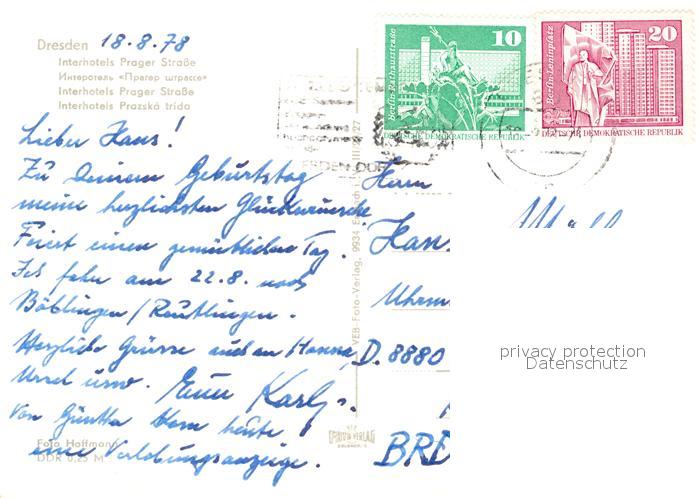 Dresden 18.8.78
Interhotels Prager Straße
Интеротель «Прагер штрассе»
Interhotels Prager Straße
Interhotels Prazská trida
Lieber Hans!
Zu Deinem Geburtstag
meine herzlichsten Glückwünsche.
Feiert einen gemütlichen Tag.
Ich fahre am 22.8. nach
Böblingen/Reutlingen.
Herzliche Grüsse auch an Hanna,
Ursel usw. Euer Karl
Von Günther kam heute
eine Verlobungsanzeige.
Foto Hoffmann
DDR 0,25 M
VEB-Foto-Verlag, 9934
10
Berlin-Rathausstraße
DEUTSCHE DEMOKRATISCHE REPUBLIK
20
Berlin-Leninplatz
DEUTSCHE DEMOKRATISCHE REPUBLIK
Herrn
Hans
D. 8880
privacy protection
Datenschutz